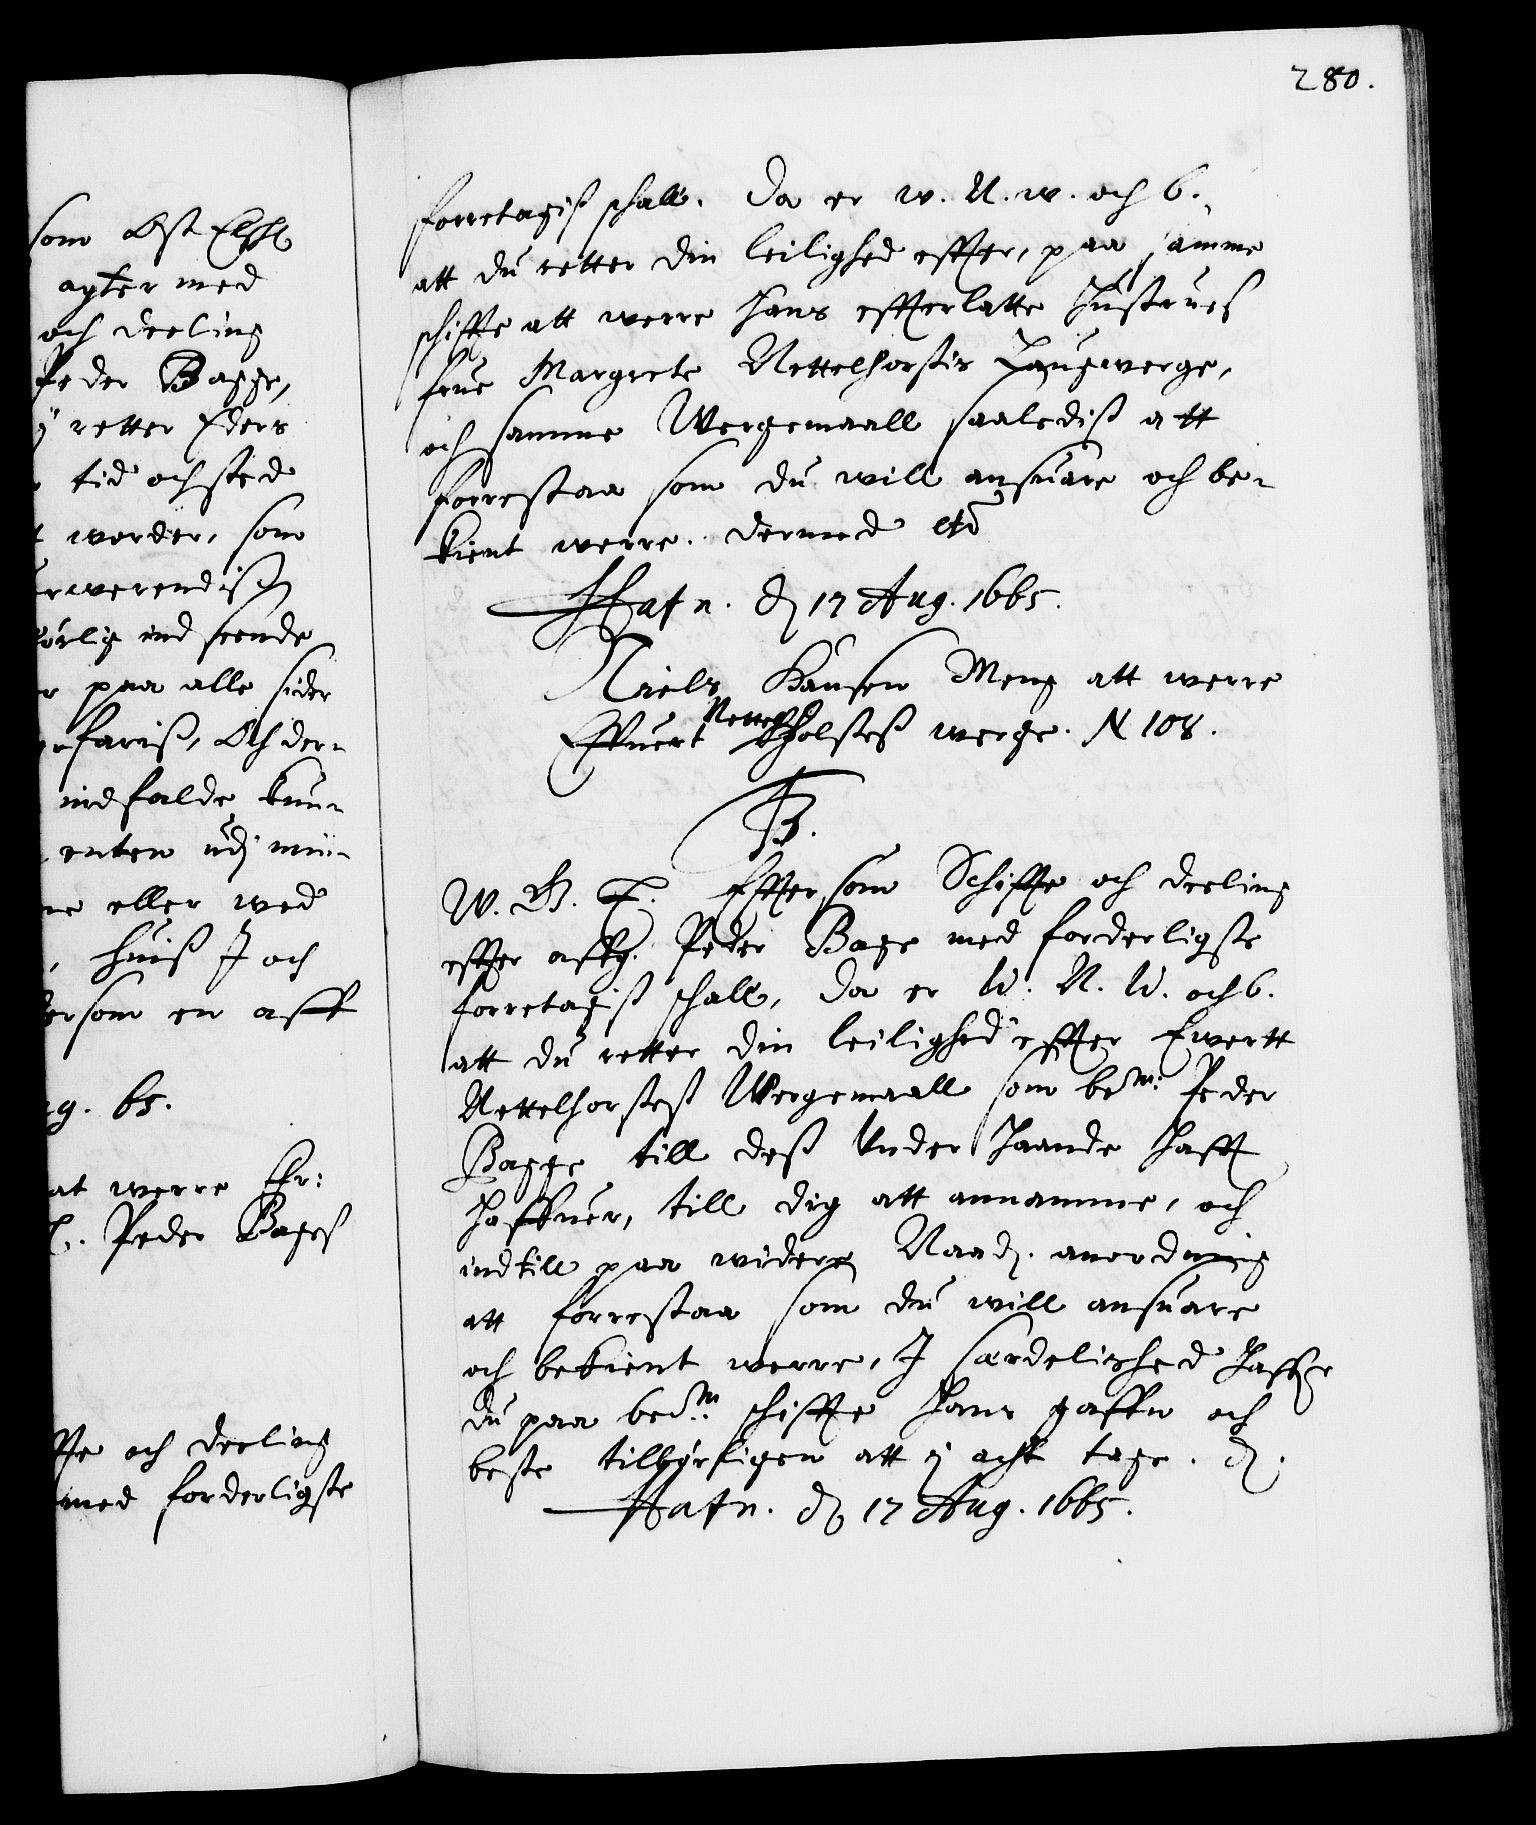 280.
som Ost Elsk
agter med
och deeling
Peder Bagge,
retter Eders
tid och sted
worder, som
erwerendisch
indseende
paa alle sider
farris, Och der-
indfalde kun-
enten udj min-
eller wed
, huis I och
som en aff
g. 65.
at werre Chr:
Peder Bages
och deeling
med forderligste
forretagis schall. Da er w. N. w. och b.,
att du retter din leilighed effter, paa samme
schiffte att werre hans effterlatte hustrues
frue Margrete Nettelhorstis Laugwerge,
och samme Wergemaall saaledis att
forrestaa som du will ansuare och be-
kient werre. dermed etc
Hafn. d 17 Aug. 1665.
Niels Hansen Meng att werre
Effuert Nettelholstes werge. N 108.
F3.
W. G. T. Efftersom Schiffte och deeling
effter affg. Peder Bage med forderligste
forretagis schall, da er W. N. W. och b.
att du retter din leilighed effter Ewertt
Nettelhorstes Wergemaall som bem: Peder
Bagge till des under haande hafft
haffuer, till dig att annamme, och
indtill paa widere Naad. anordning
att forrestaa som du will ansuare
och bekient werre, I særdelished haffer
du paa bem: schiffte hans gaffn och
beste tilbørligen att i acht tage. d.
Hafn. d 17 Aug. 1665.